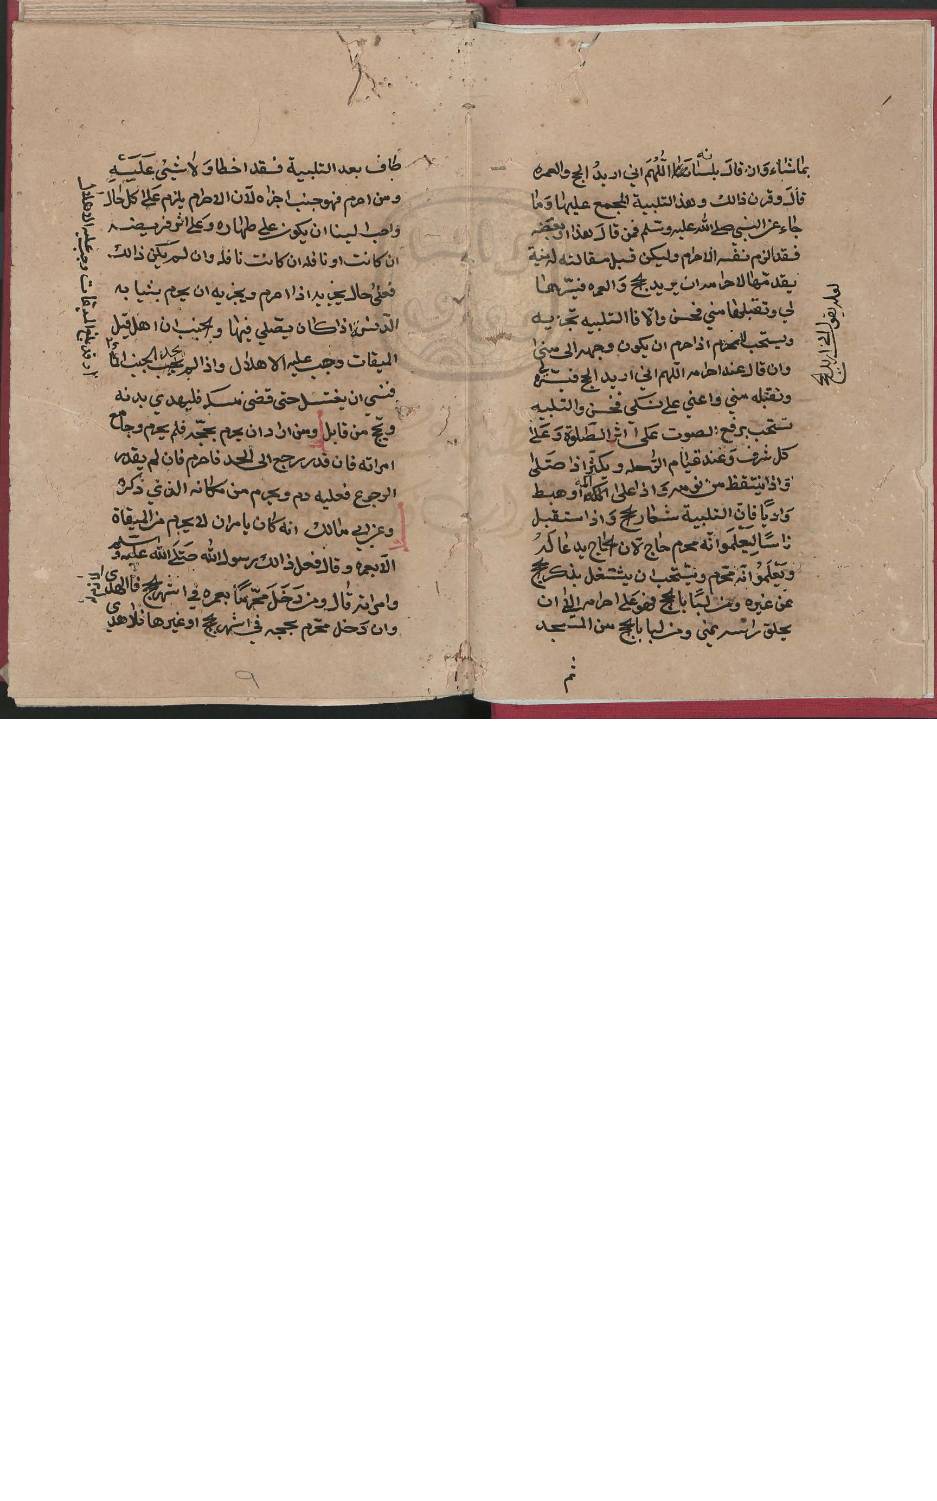 بماشاء وان قال بلسانه اللهم اني اريد الحج والعمره
قال وقرن ذالك وهذ التلبية المجمع عليها وما
جاء عن النبي صلى الله عليه وسلم فمن قال هذا او بعضه
فقد الزم نفسه الاحرام وليكن قبل مقالته له نية
يقدمها لاحرامه ان يريد بحج والعمره فيسرهما
لي وتقبلهما مني فحسن والا فا التلبيه تجزيه
ويستحب للمحرم اذا حرم ان يكون وجهه الى منى
وان قال عند احرامه اللهم اني اريد الحج فيسره لي
وتقبله مني واعني على نسكي فحسن والتلبيه
تستحب برفع الصوت على اثر الصلوة وعلى
كل شرف وعند قيام الرحله ويكثر اذا صلى
واذا يتقظ من نومه واذا على اكمة او هبط
واديا فان التلبية شعار الحج واذا استقبل
ناسا ليعلموا انه محرم حاج لان الحاج يدعا له
ويعلموا انه محرم ويستحب ان يشتغل بذكر الحج
عن غيره ومن لبا بالحج فهو على احرامه الى ان
يحلق راسه بمنى ومن لبا بالحج من المسجد
طاف بعد التلبية فقد اخطا ولا شيئ عليه
ومن احرم فهو جنب اجزاه لان الاحرام يلزم على كل حال
واحب لينا ان يكون على طهاره وعلى اثر فريضه
ان كانت او نافله ان كانت نافله وان لم يكن ذالك
فعلى حال يجزيه اذا احرم ويجزيه ان يحرم بثيابه
الدنس اذا كان يصلي فيها والجنب ان اهل قبل
الميقات وجب عليه الاهلال واذا لم يجد الجنب الما
فنسي ان يغتسل حتى قضى نسكه فليهدي بدنه
ويحج من قابل ومن اراد ان يحرم بحجه فلم يحرم وجامع
امراته فان قدر رجع الى الحد فاحرم فان لم يقدر
الرجوع فعليه دم ويحرم من مكانه الذي ذكره
وعن ابي مالك انه كان يامر ان لا يحرم من الميقاة
الا بعمره وقال فعل ذالك رسول الله صلى الله عليه وسلم
وامر انه قال ومن دخل محرما بعمره في اشهر الحج فا الهدى
وان دخل محرم بحجه في اشهر الحج او غيرها فلا هدي